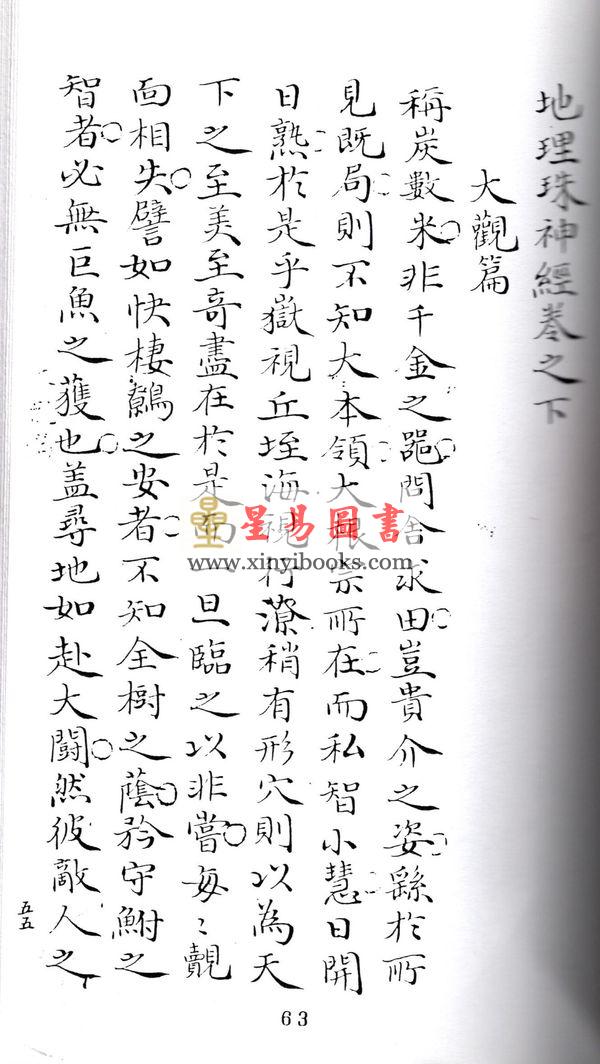 地理珠神經卷之下
大觀篇
稱炭數米非千金之噐問舍求田豈貴介之姿繇於所
見既局則不知大本領大根宗所在而私智小慧日開
日熟於是乎嶽視丘垤海視行潦稍有形穴則以為天
下之至美至奇盡在於是而一旦臨之以非嘗每〻覿
面相失譬如快棲鷦之安者不知全樹之蔭矜守鮒之
智者必無巨魚之獲也盖尋地如赴大鬪然彼敵人之
星易圖書
www.xinyibooks.com
五五
63